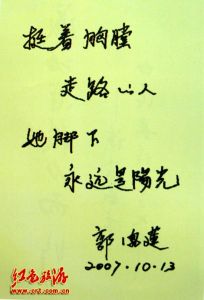 挺着胸膛
走路的人
她脚下
永远是陽光
郭鳳蓮
2007.10.13
红色旅游
www.crt.com.cn